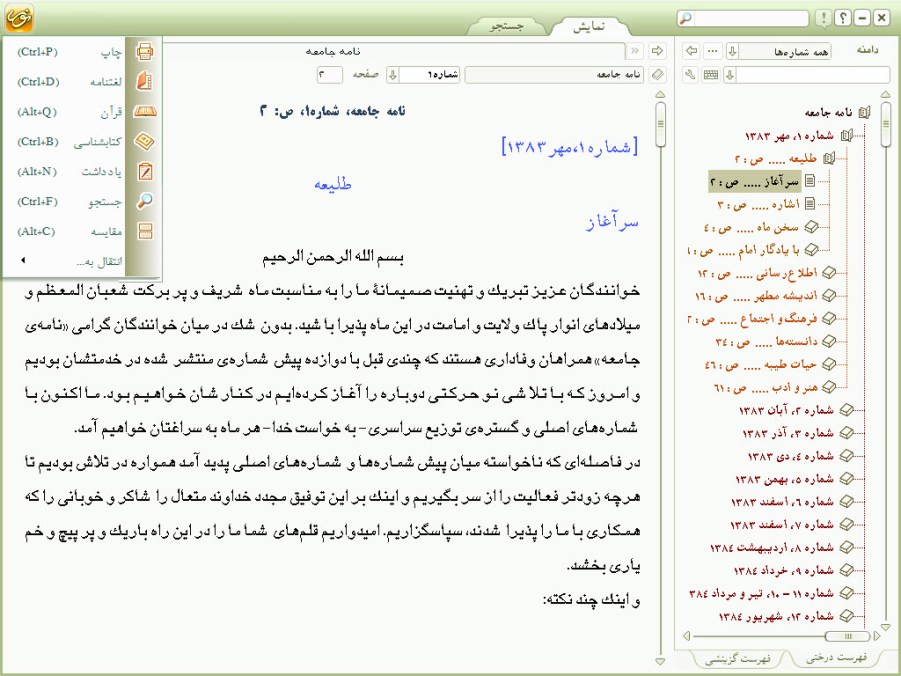 نمایش
جستجو
دامنه
همه شماره‌ها
نامه جامعه
نامه جامعه
شماره۱
صفحه
۲
چاپ (Ctrl+P)
لغتنامه (Ctrl+D)
قرآن (Alt+Q)
کتابشناسی (Ctrl+B)
یادداشت (Alt+N)
جستجو (Ctrl+F)
مقایسه (Alt+C)
انتقال به...
نامه جامعه
شماره ۱، مهر ۱۳۸۳
طلیعه ..... ص : ۲
سرآغاز ..... ص : ۲
اشاره ..... ص : ۳
سخن ماه ..... ص : ٤
با یادگار امام ..... ص : ۸
اطلاع‌رسانی ..... ص : ۱۲
اندیشه مطهر ..... ص : ۱٦
فرهنگ و اجتماع ..... ص :
دانسته‌ها ..... ص : ۳٤
حیات طیبه ..... ص : ٤٦
هنر و ادب ..... ص : ٦۱
شماره ۲، آبان ۱۳۸۳
شماره ۳، آذر ۱۳۸۳
شماره ٤، دی ۱۳۸۳
شماره ۵، بهمن ۱۳۸۳
شماره ٦، اسفند ۱۳۸۳
شماره ۷، اسفند ۱۳۸۳
شماره ۸، اردیبهشت ۱۳۸٤
شماره ۹، خرداد ۱۳۸٤
شماره ۱۱ - ۱۰، تیر و مرداد ۳۸٤
شماره ۱۲، شهریور ۱۳۸٤
فهرست درختی
فهرست گزینشی
نامه جامعه، شماره۱، ص: ۲
[شماره۱،مهر۱۳۸۳]
طلیعه
سرآغاز
بسم الله الرحمن الرحیم
خوانندگان عزیز تبریك و تهنیت صمیمانهٔ ما را به مناسبت ماه شریف و پر برکت شعبان المعظم و
میلادهای انوار پاك ولایت و امامت در این ماه پذیرا با شید. بدون شك در میان خوانندگان گرامی «نامه‌ی
جامعه» همراهان وفاداری هستند که چندی قبل با دوازده پیش شماره‌ی منتشر شده در خدمتشان بودیم
و امروز که با تلا شی نو حرکتی دوباره را آغاز کرده‌ایم در کنار شان خواهیم بود. ما اکنون با
شماره‌های اصلی و گستره‌ی توزیع سراسری- به خواست خدا- هر ماه به سراغتان خواهیم آمد.
در فاصله‌ای که ناخواسته میان پیش شماره‌ها و شماره‌های اصلی پدید آمد همواره در تلاش بودیم تا
هرچه زودتر فعالیت را از سر بگیریم و اینك بر این توفیق مجدد خداوند متعال را شاکر و خوبانی را که
همکاری با ما را پذیرا شدند، سپاسگزاریم. امیدواریم قلم‌های شما ما را در این راه باریك و پر پیچ و خم
یاری بخشد.
و اینك چند نکته: